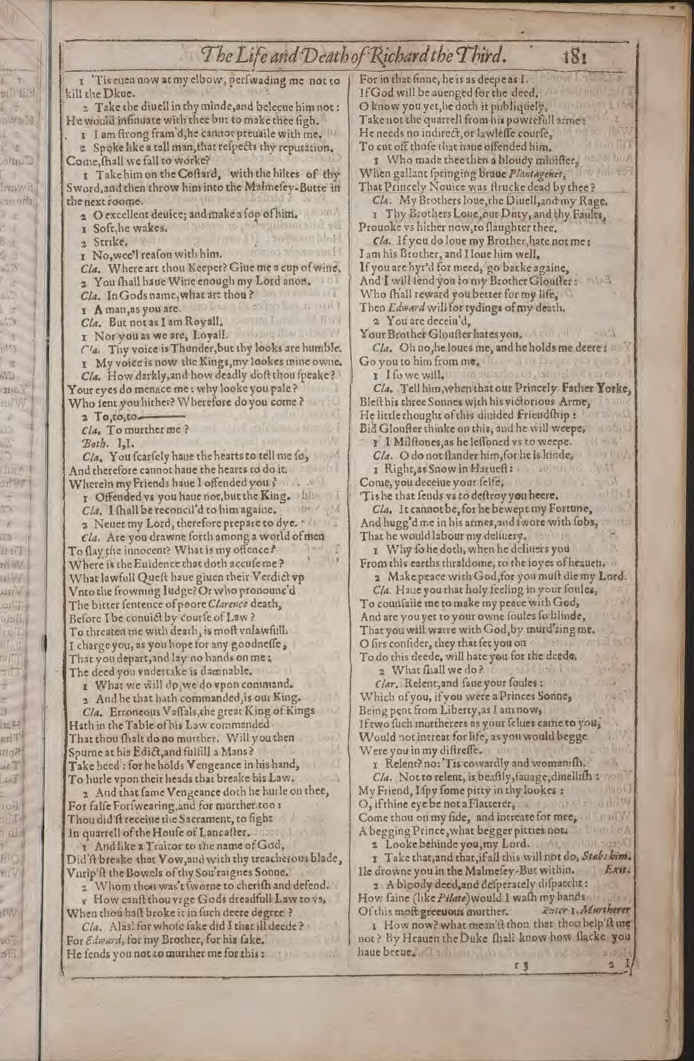 The Life and Death of Richard the Third. 181
1 'Tis euen now at my elbow, perswading me not to
kill the Dkue.
2 Take the diuell in thy minde, and beleeue him not:
He would insinuate with thee but to make thee sigh.
1 I am strong fram'd, he cannot preuaile with me.
2 Spoke like a tall man, that respects thy reputation.
Come, shall we fall to worke?
1 Take him on the Costard, with the hiltes of thy
Sword, and then throw him into the Malmesey-Butte in
the next roome.
2 O excellent deuice; and make a sop of him.
1 Soft, he wakes.
2 Strike.
1 No, wee'l reason with him.
Cla. Where art thou Keeper? Giue me a cup of wine.
2 You shall haue Wine enough my Lord anon.
Cla. In Gods name, what art thou?
1 A man, as you are.
Cla. But not as I am Royall.
1 Nor you as we are, Loyall.
Cla. Thy voice is Thunder, but thy looks are humble.
1 My voice is now the Kings, my lookes mine owne.
Cla. How darkly, and how deadly dost thou speake?
Your eyes do menace me: why looke you pale?
Who sent you hither? Wherefore do you come?
2 To, to, to———
Cla. To murther me?
Both. I, I.
Cla. You scarsely haue the hearts to tell me so,
And therefore cannot haue the hearts to do it.
Wherein my Friends haue I offended you?
1 Offended vs you haue not, but the King.
Cla. I shall be reconcil'd to him againe.
2 Neuer my Lord, therefore prepare to dye.
Cla. Are you drawne forth among a world of men
To slay the innocent? What is my offence?
Where is the Euidence that doth accuse me?
What lawfull Quest haue giuen their Verdict vp
Vnto the frowning Iudge? Or who pronounc'd
The bitter sentence of poore Clarence death,
Before I be conuict by course of Law?
To threaten me with death, is most vnlawfull.
I charge you, as you hope for any goodnesse,
That you depart, and lay no hands on me:
The deed you vndertake is damnable.
1 What we will do, we do vpon command.
2 And he that hath commanded, is our King.
Cla. Erroneous Vassals, the great King of Kings
Hath in the Table of his Law commanded
That thou shalt do no murther. Will you then
Spurne at his Edict, and fulfill a Mans?
Take heed: for he holds Vengeance in his hand,
To hurle vpon their heads that breake his Law.
2 And that same Vengeance doth he hurle on thee,
For false Forswearing, and for murther too:
Thou did'st receiue the Sacrament, to fight
In quarrell of the House of Lancaster.
1 And like a Traitor to the name of God,
Did'st breake that Vow, and with thy treacherous blade,
Vnrip'st the Bowels of thy Sou'raignes Sonne.
2 Whom thou was't sworne to cherish and defend.
1 How canst thou vrge Gods dreadfull Law to vs,
When thou hast broke it in such deere degree?
Cla. Alas! for whose sake did I that ill deede?
For Edward, for my Brother, for his sake.
He sends you not to murther me for this:
For in that sinne, he is as deepe as I.
If God will be auenged for the deed,
O know you yet, he doth it publiquely,
Take not the quarrell from his powrefull arme:
He needs no indirect, or lawlesse course,
To cut off those that haue offended him.
1 Who made thee then a bloudy minister,
When gallant springing braue Plantagenet,
That Princely Nouice was strucke dead by thee?
Cla. My Brothers loue, the Diuell, and my Rage.
1 Thy Brothers Loue, our Duty, and thy Faults,
Prouoke vs hither now, to slaughter thee.
Cla. If you do loue my Brother, hate not me:
I am his Brother, and I loue him well.
If you are hyr'd for meed, go backe againe,
And I will send you to my Brother Glouster:
Who shall reward you better for my life,
Then Edward will for tydings of my death.
2 You are deceiu'd,
Your Brother Glouster hates you.
Cla. Oh no, he loues me, and he holds me deere:
Go you to him from me.
1 I so we will.
Cla. Tell him, when that our Princely Father Yorke,
Blest his three Sonnes with his victorious Arme,
He little thought of this diuided Friendship:
Bid Glouster thinke on this, and he will weepe.
1 I Milstones, as he lessoned vs to weepe.
Cla. O do not slander him, for he is kinde,
1 Right, as Snow in Haruest:
Come, you deceiue your selfe,
'Tis he that sends vs to destroy you heere.
Cla. It cannot be, for he bewept my Fortune,
And hugg'd me in his armes, and swore with sobs,
That he would labour my deliuery.
1 Why so he doth, when he deliuers you
From this earths thraldome, to the ioyes of heauen.
2 Make peace with God, for you must die my Lord.
Cla. Haue you that holy feeling in your soules,
To counsaile me to make my peace with God,
And are you yet to your owne soules so blinde,
That you will warre with God, by murd'ring me.
O sirs consider, they that set you on
To do this deede, will hate you for the deede.
2 What shall we do?
Clar. Relent, and saue your soules:
Which of you, if you were a Princes Sonne,
Being pent from Liberty, as I am now,
If two such murtherers as your selues came to you,
Would not intreat for life, as you would begge
Were you in my distresse.
1 Relent? no: 'Tis cowardly and womanish.
Cla. Not to relent, is beastly, sauage, diuellish:
My Friend, I spy some pitty in thy lookes:
O, if thine eye be not a Flatterer,
Come thou on my side, and intreate for mee,
A begging Prince, what begger pitties not.
2 Looke behinde you, my Lord.
1 Take that, and that, if all this will not do, Stabs him.
Ile drowne you in the Malmesey-But within. Exit.
2 A bloody deed, and desperately dispatcht:
How faine (like Pilate) would I wash my hands
Of this most greeuous murther. Enter 1. Murtherer
1 How now? what mean'st thou that thou help'st me
not? By Heauen the Duke shall know how slacke you
haue beene.
r 3 2 I